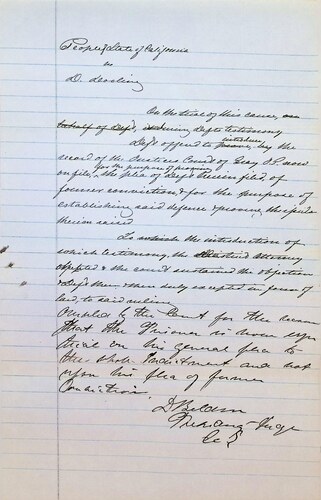 People State of California
vs
D.
On the trial of this cause, on
behalf of Deft, during Defts testimony
introduce
Deft offered to prove, by the
record of the Justices Court of Gray J.P. now
for the purpose of proving
on file, the plea of Deft therein filed, of
former conviction, & for the purpose of
establishing said defense & proving the
therein raised
To which the introduction of
which testimony, the District Attorney
objected & the court sustained the objection
& Deft then & there duly excepted in form of
law, to said ruling
by the Court for the reason
that the Prisoner is now upon
trial on his general plea to
the whole Indictment and not
upon his plea of former
Conviction.
D Belden
Presiding Judge